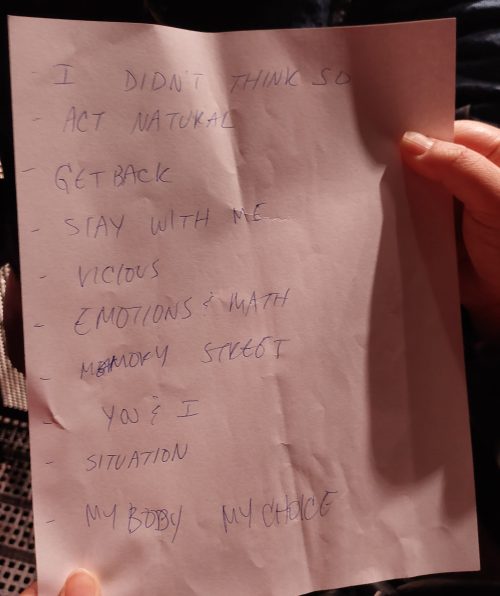 - I DIDN'T THINK SO
- ACT NATURAL
- GET BACK
- STAY WITH ME
- VICIOUS
- EMOTIONS & MATH
- MEMORY STREET
- YOU & I
- SITUATION
- MY BODY MY CHOICE